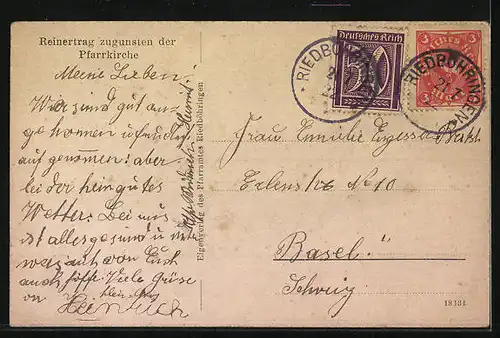 Reinertrag zugunsten der
Pfarrkirche
Meine Lieben!
Wir sind gut an-
gekommen u freudig
aufgenommen! aber
leider kein gutes
Wetter. Bei uns
ist alles gesund u
von Euch
auch hoffe Viele Grüse
von
Heinrich
Eigenverlag des Pfarramtes Riedböhringen
Deutsches Reich
5
3
3
RIEDBÖHRINGEN
RIEDBÖHRINGEN
21.7.
Frau Emilie
Erlenstr No 10
Basel.
Schweiz
18134